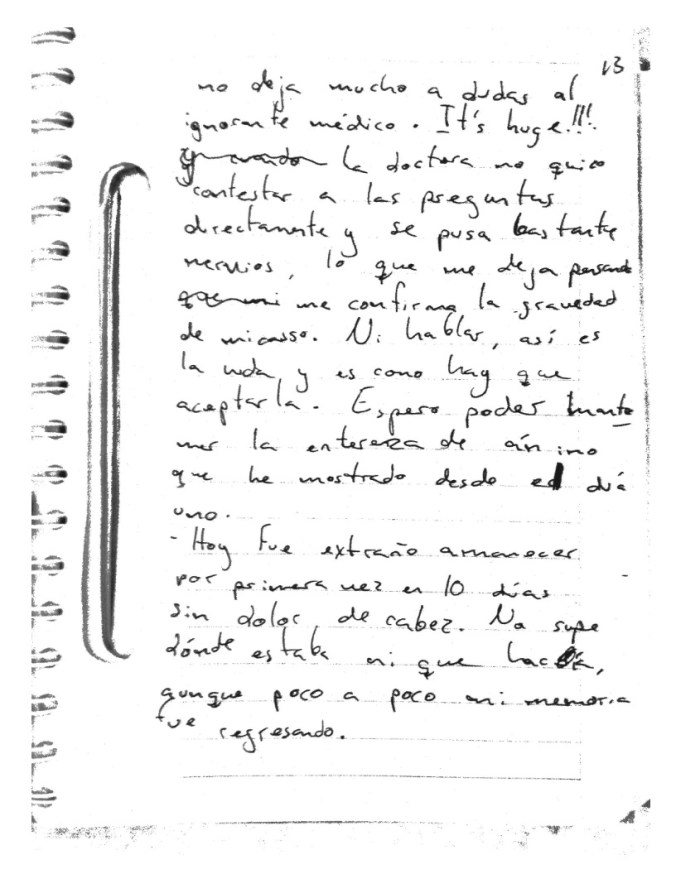 13
no deja mucho a dudas al
ignorante médico. It's huge!!!
y cuando la doctora no quiso
contestar a las preguntas
directamente y se puso bastante
nervios, lo que me deja pensando
que mi me confirma la gravedad
de mi caso. Ni hablar, así es
la vida y es como hay que
aceptarla. Espero poder mante
ner la entereza de ánimo
que he mostrado desde el día
uno.
- Hoy fue extraño amanecer
por primera vez en 10 días
sin dolor de cabez. No supe
dónde estaba ni que hacía,
aunque poco a poco mi memoria
fue regresando.